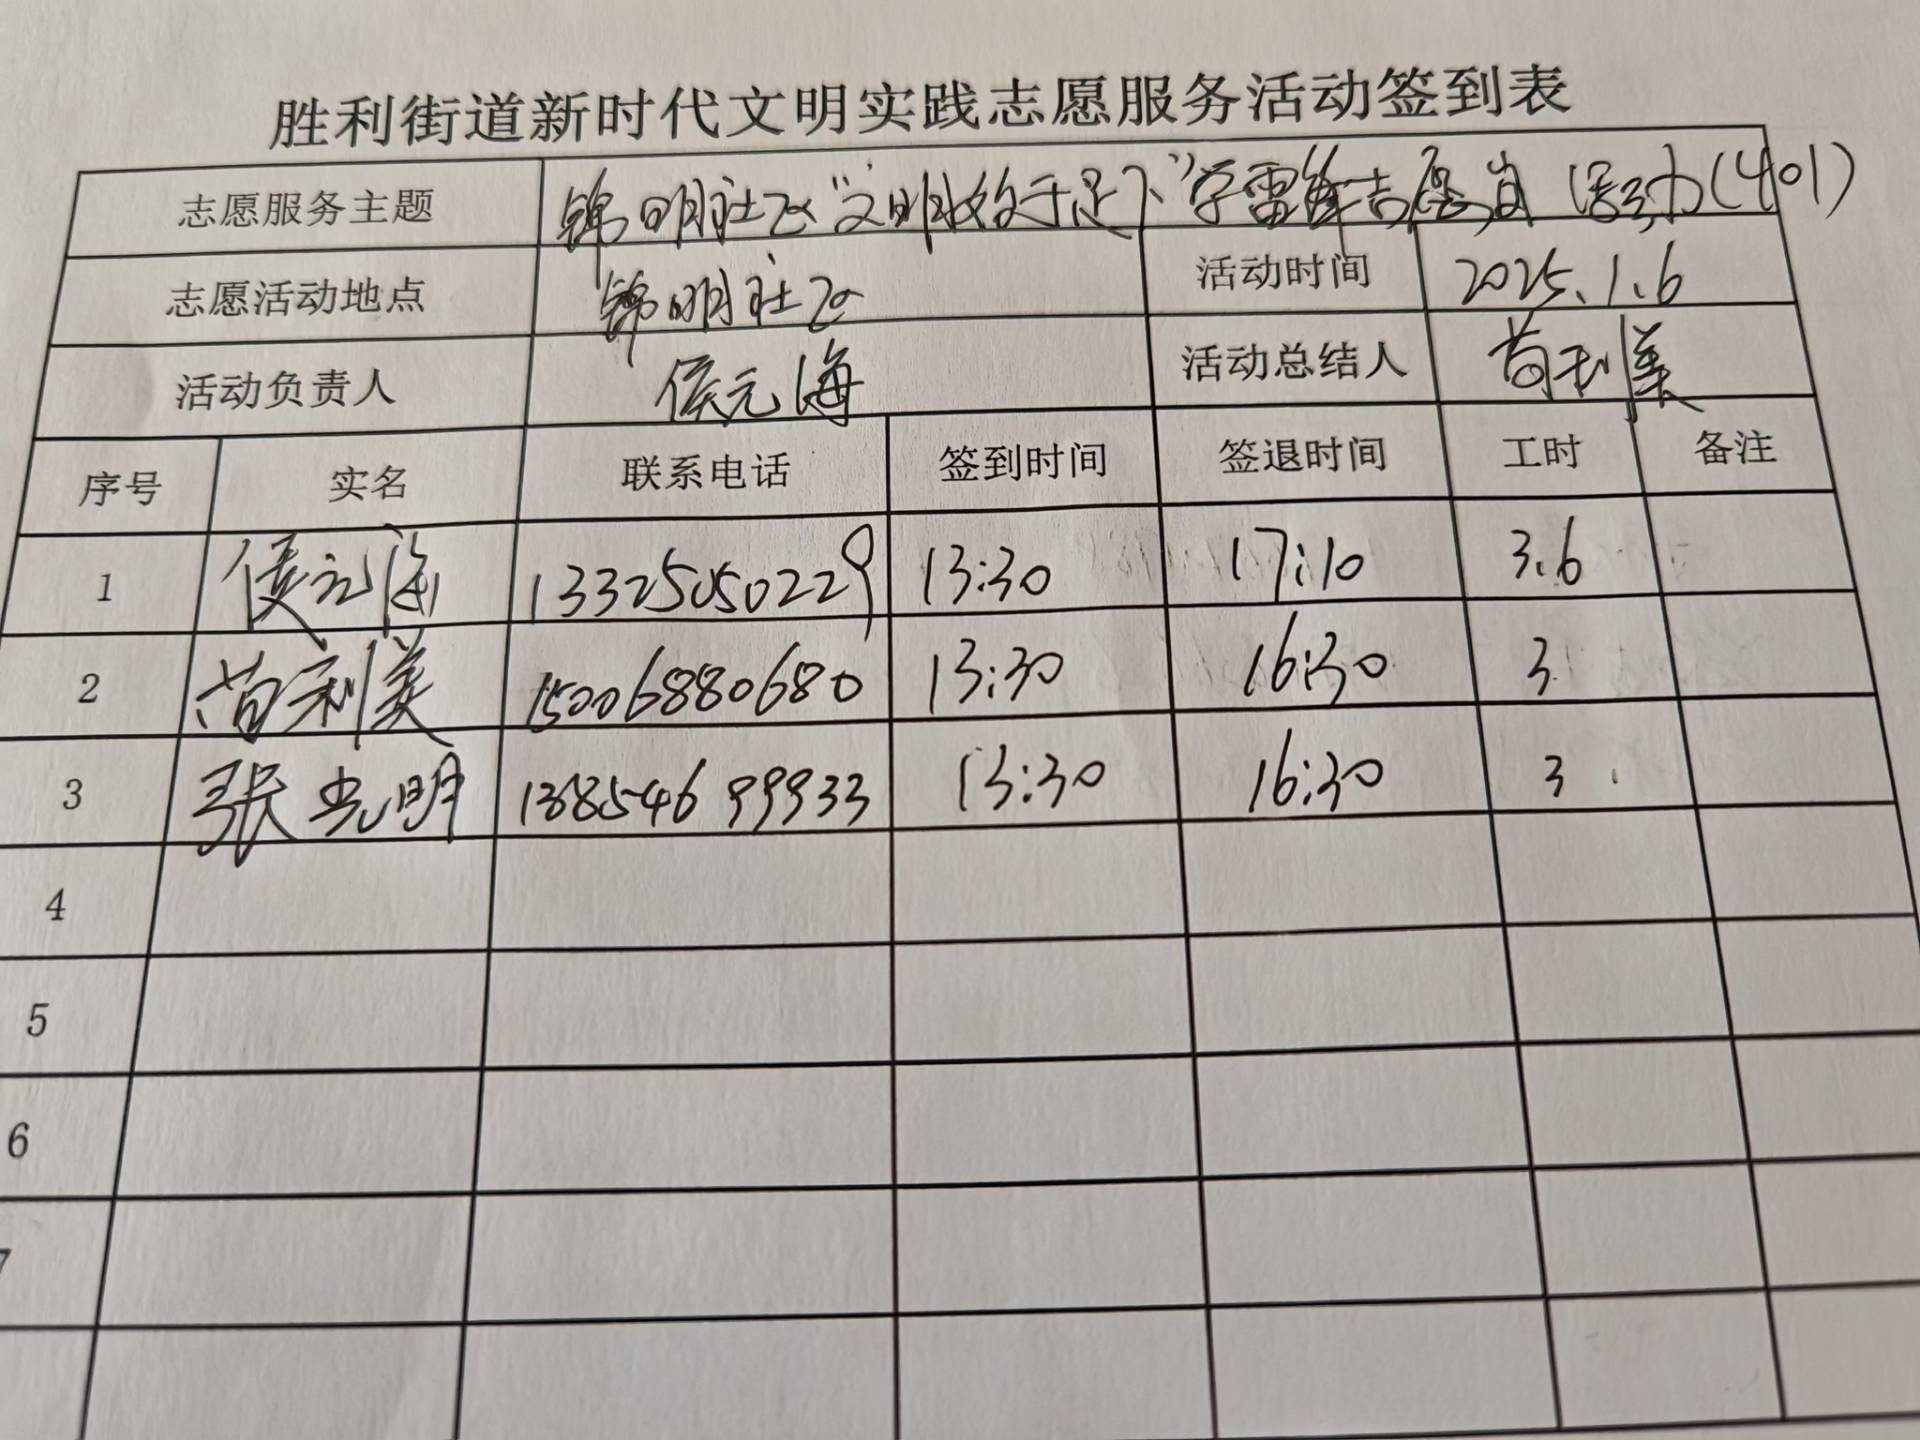 胜利街道新时代文明实践志愿服务活动签到表
志愿服务主题 锦明社区“文明始于足下”学雷锋志愿者活动(401)
志愿活动地点 锦明社区 活动时间 2025.1.6
活动负责人 侯元海 活动总结人 苗利美
序号 实名 联系电话 签到时间 签退时间 工时 备注
1 侯元海 13325050229 13:30 17:10 3.6
2 苗利美 15006880680 13:30 16:30 3
3 张光明 13:30 16:30 3
4
5
6
7